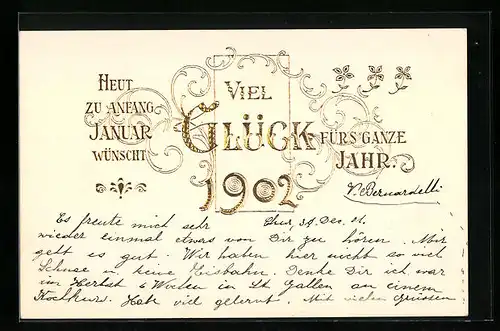 HEUT
ZU ANFANG
JANUAR
WÜNSCHT
VIEL
GLÜCK
1902
FÜRS GANZE
JAHR.
V. Bernardelli
Chur, 31. Dez. 01.
Es freute mich sehr
wieder einmal etwas von Dir zu hören. Mir
geht es gut. Wir haben hier nicht so viel
Schnee u. keine Eisbahn. Denke Dir ich war
im Herbst 6 Wochen in St. Gallen an einem
Kochkurs. Habe viel gelernt. Mit vielen Grüssen